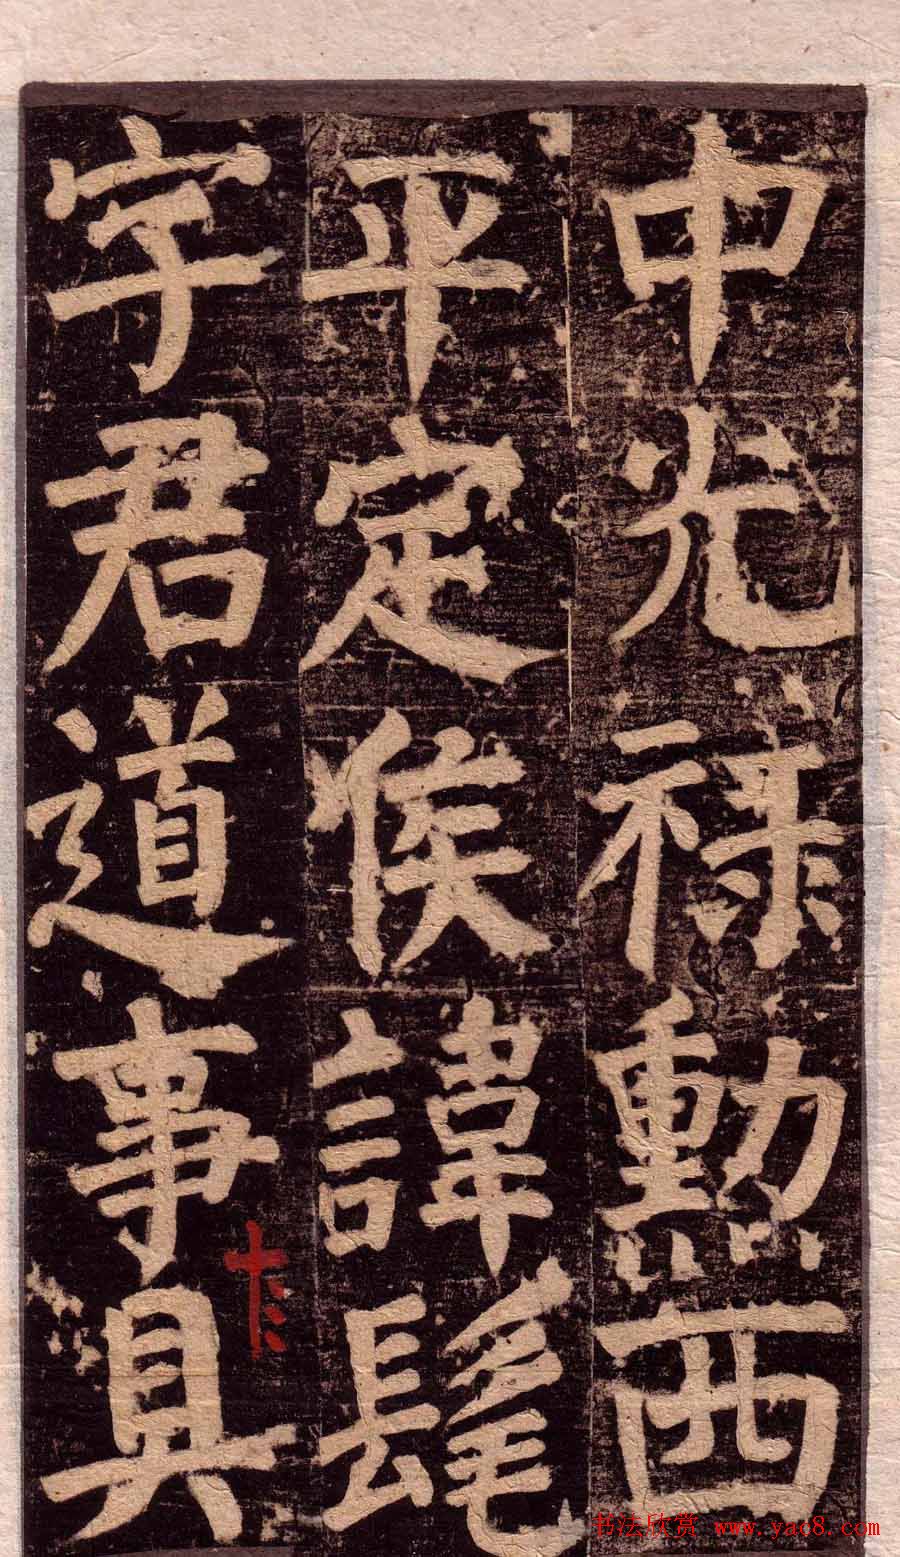 中光禄勲西
平定侯諱髦
字君道事具
书法欣赏 www.yac8.com